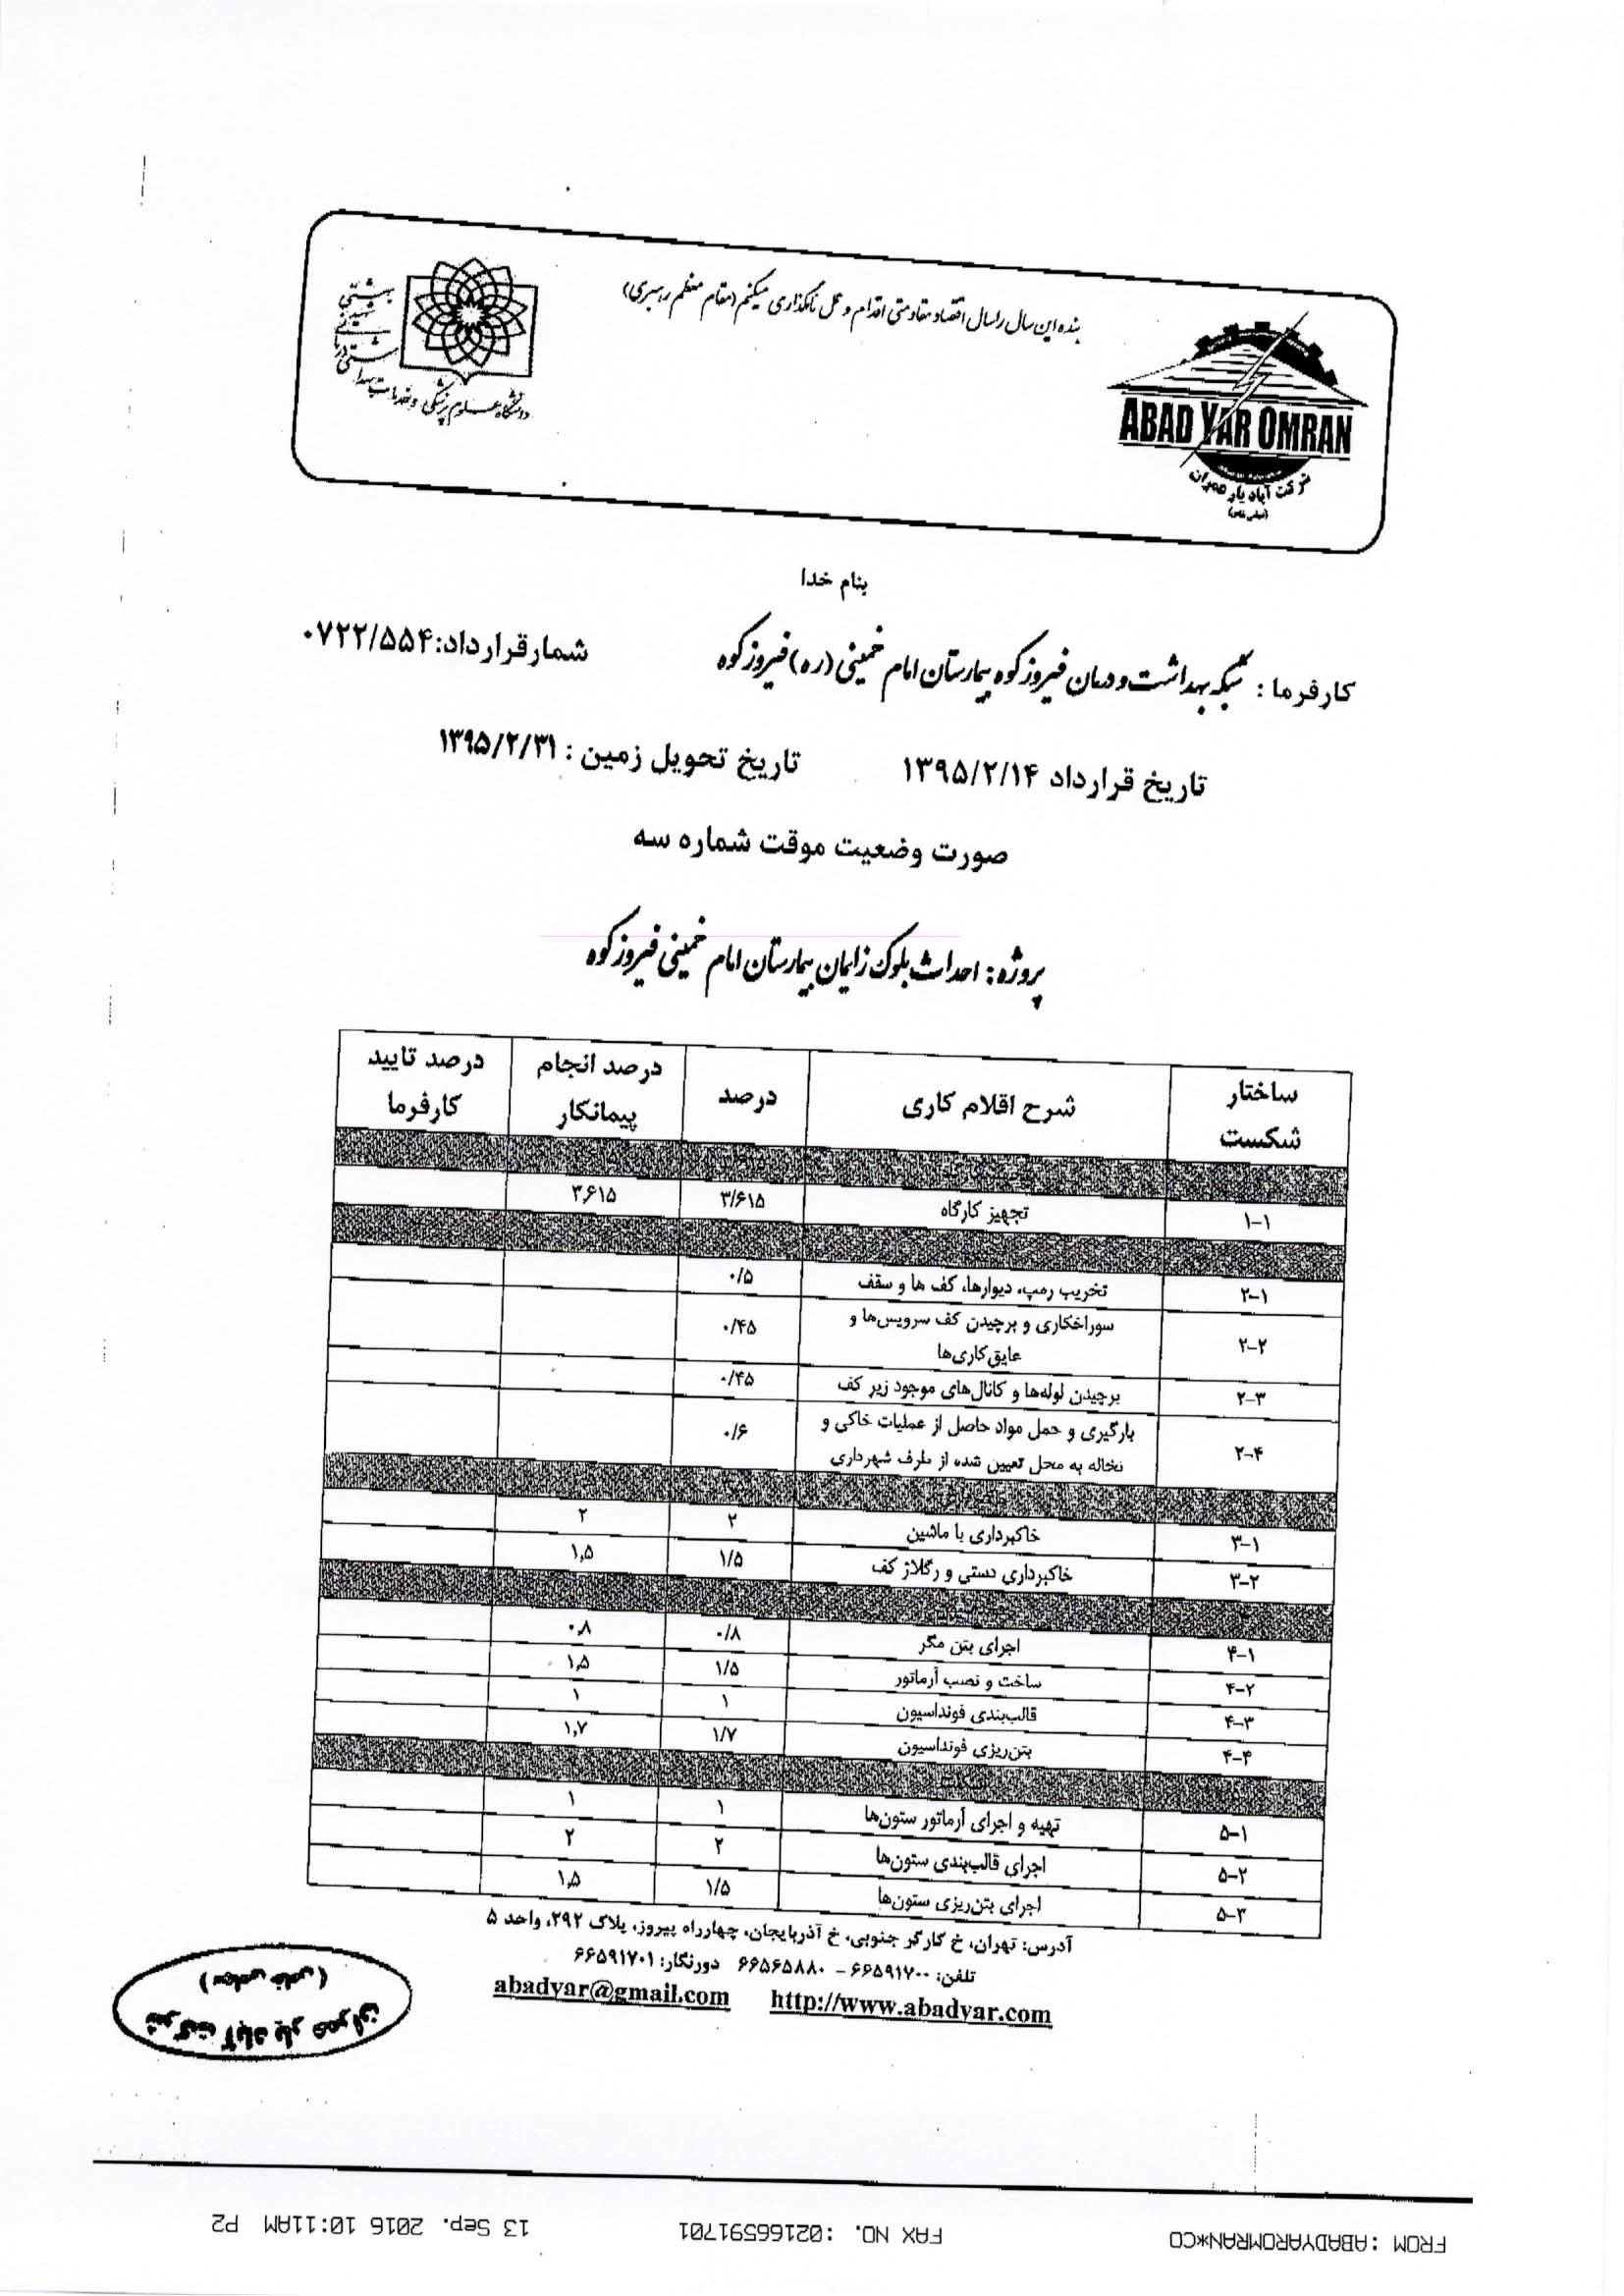 بنده این سال را سال اقتصاد مقاومتی اقدام و عمل نامگذاری میکنم (مقام معظم رهبری)
دانشگاه علوم پزشکی و خدمات بهداشتی درمانی شهید بهشتی
ABAD YAR OMRAN
شرکت آباد یار عمران
(سهامی خاص)
بنام خدا
کارفرما : شبکه بهداشت و درمان فیروزکوه بیمارستان امام خمینی (ره) فیروزکوه شمارقرارداد:۰۷۲۲/۵۵۴
تاریخ قرارداد ۱۳۹۵/۲/۱۴ تاریخ تحویل زمین : ۱۳۹۵/۲/۳۱
صورت وضعیت موقت شماره سه
پروژه : احداث بلوک زایمان بیمارستان امام خمینی فیروزکوه
ساختار شکست شرح اقلام کاری درصد درصد انجام پیمانکار درصد تایید کارفرما
۱-۱ تجهیز کارگاه ۳/۶۱۵ ۳,۶۱۵
۲-۱ تخریب رمپ، دیوارها، کف ها و سقف ۰/۵
۲-۲ سوراخکاری و برچیدن کف سرویس‌ها و
عایق‌کاری‌ها ۰/۴۵
۲-۳ برچیدن لوله‌ها و کانال‌های موجود زیر کف ۰/۴۵
۲-۴ بارگیری و حمل مواد حاصل از عملیات خاکی و
نخاله به محل تعیین شده از طرف شهرداری ۰/۶
۳-۱ خاکبرداری با ماشین ۲ ۲
۳-۲ خاکبرداری دستی و رگلاژ کف ۱/۵ ۱,۵
۴-۱ اجرای بتن مگر ۰/۸ ۰.۸
۴-۲ ساخت و نصب آرماتور ۱/۵ ۱,۵
۴-۳ قالب‌بندی فونداسیون ۱ ۱
۴-۴ بتن‌ریزی فونداسیون ۱/۷ ۱,۷
۵-۱ تهیه و اجرای آرماتور ستون‌ها ۱ ۱
۵-۲ اجرای قالب‌بندی ستون‌ها ۲ ۲
۵-۳ اجرای بتن‌ریزی ستون‌ها ۱/۵ ۱,۵
آدرس: تهران، خ کارگر جنوبی، خ آذربایجان، چهارراه پیروز، پلاک ۲۹۲، واحد ۵
تلفن: ۶۶۵۹۱۷۰۰ – ۶۶۵۶۵۸۸۰ دورنگار: ۶۶۵۹۱۷۰۱
abadyar@gmail.com http://www.abadyar.com
شرکت آباد یار عمران
(سهامی خاص)
FROM :ABADYAROMRAN*CO FAX NO. :02166591701 13 Sep. 2016 10:11AM P2